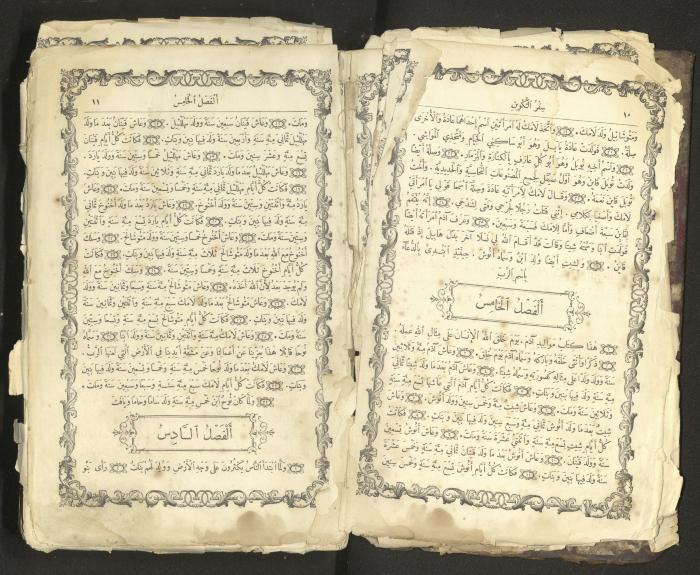 ١٠ سفر التكوين
ومتوشائيل ولد لامك. واتخذ لامك له امرأتين اسم إحداهما عادة والأخرى
صلة. فولدت عادة يابل وهو أبو ساكني الخيام ومتخذي المواشي.
واسم أخيه يوبل وهو أبو كل عازف بالكنارة والمزمار. وصلة أيضا
ولدت توبل قاين وهو أول صيقل لجميع المصنوعات النحاسية والحديدية. وأخت
توبل قاين نعمة. وقال لامك لامرأتيه عادة وصلة اسمعا قولي يا امرأتي
لامك وأصغيا لكلامي. إني قتلت رجلا لجرحي وفتى لشدخي. إنه ينتقم
لقاين سبعة أضعاف وأما للامك فسبعة وسبعين. وعرف آدم امرأته أيضا
فولدت ابنا وسمته شيتا وقالت قد أقام الله لي نسلا آخر بدل هابيل إذ قتله
قاين. ولشيت أيضا ولد ابن وسماه أنوش. حينئذ ابتدئ بالدعاء
باسم الرب
الفصل الخامس
هذا كتاب مواليد آدم. يوم خلق الله الإنسان على مثال الله عمله.
ذكرا وأنثى خلقه وباركه وسماه آدم يوم خلق. وعاش آدم مئة وثلاثين
سنة وولد ولدا على مثاله كصورته وسماه شيتا. وكانت أيام آدم بعدما ولد شيتا ثماني
مئة سنة ولد فيها بنين وبنات. فكانت كل أيام آدم التي عاشها تسع مئة سنة
وثلاثين سنة ومات. وعاش شيت مئة وخمس سنين وولد أنوش. وعاش
شيت بعد ما ولد أنوش ثماني مئة وسبع سنين ولد فيها بنين وبنات. فكانت
كل أيام شيت تسع مئة واثنتي عشرة سنة ومات. وعاش أنوش تسعين
سنة وولد قينان. وعاش أنوش بعد ما ولد قينان ثماني مئة وخمس عشرة
سنة ولد فيها بنين وبنات. فكانت كل أيام أنوش تسع مئة سنة وخمس سنين
الفصل الخامس ١١
ومات. وعاش قينان سبعين سنة وولد مهلئيل. وعاش قينان بعد ما ولد
مهلئيل ثماني مئة سنة وأربعين سنة ولد فيها بنين وبنات. فكانت كل أيام قينان
تسع مئة وعشر سنين ومات. وعاش مهلئيل خمسا وستين سنة وولد يارد.
وعاش مهلئيل بعد ما ولد يارد ثماني مئة سنة وثلاثين سنة ولد فيها بنين وبنات.
فكانت كل أيام مهلئيل ثماني مئة سنة وخمسا وتسعين سنة ومات. وعاش
يارد مئة واثنتين وستين سنة وولد أخنوخ. وعاش يارد بعد ما ولد أخنوخ ثماني
مئة سنة ولد فيها بنين وبنات. فكانت كل أيام يارد تسع مئة سنة واثنتين
وستين سنة ومات. وعاش أخنوخ خمسا وستين سنة وولد متوشالح. وسلك
أخنوخ مع الله بعد ما ولد متوشالح ثلاث مئة سنة ولد فيها بنين وبنات. فكانت
كل أيام أخنوخ ثلاث مئة سنة وخمسا وستين سنة. وسلك أخنوخ مع الله
ولم يوجد بعد لأن الله أخذه. وعاش متوشالح مئة سنة وسبعا وثمانين سنة وولد
لامك. وعاش متوشالح بعد ما ولد لامك سبع مئة سنة واثنتين وثمانين سنة
ولد فيها بنين وبنات. فكانت كل أيام متوشالح تسع مئة سنة وتسعا وستين
سنة ومات. وعاش لامك مئة سنة واثنتين وثمانين سنة وولد ابنا. وسماه
نوحا قائلا هذا يعزينا عن أعمالنا وعن مشقة أيدينا في الأرض التي لعنها الرب.
وعاش لامك بعد ما ولد نوحا خمس مئة سنة وخمسا وتسعين سنة ولد فيها بنين
وبنات. فكانت كل أيام لامك سبع مئة سنة وسبعا وسبعين سنة ومات.
ولما كان نوح ابن خمس مئة سنة ولد ساما وحاما ويافث
الفصل السادس
ولما ابتدأ الناس يكثرون على وجه الأرض وولد لهم بنات. رأى بنو